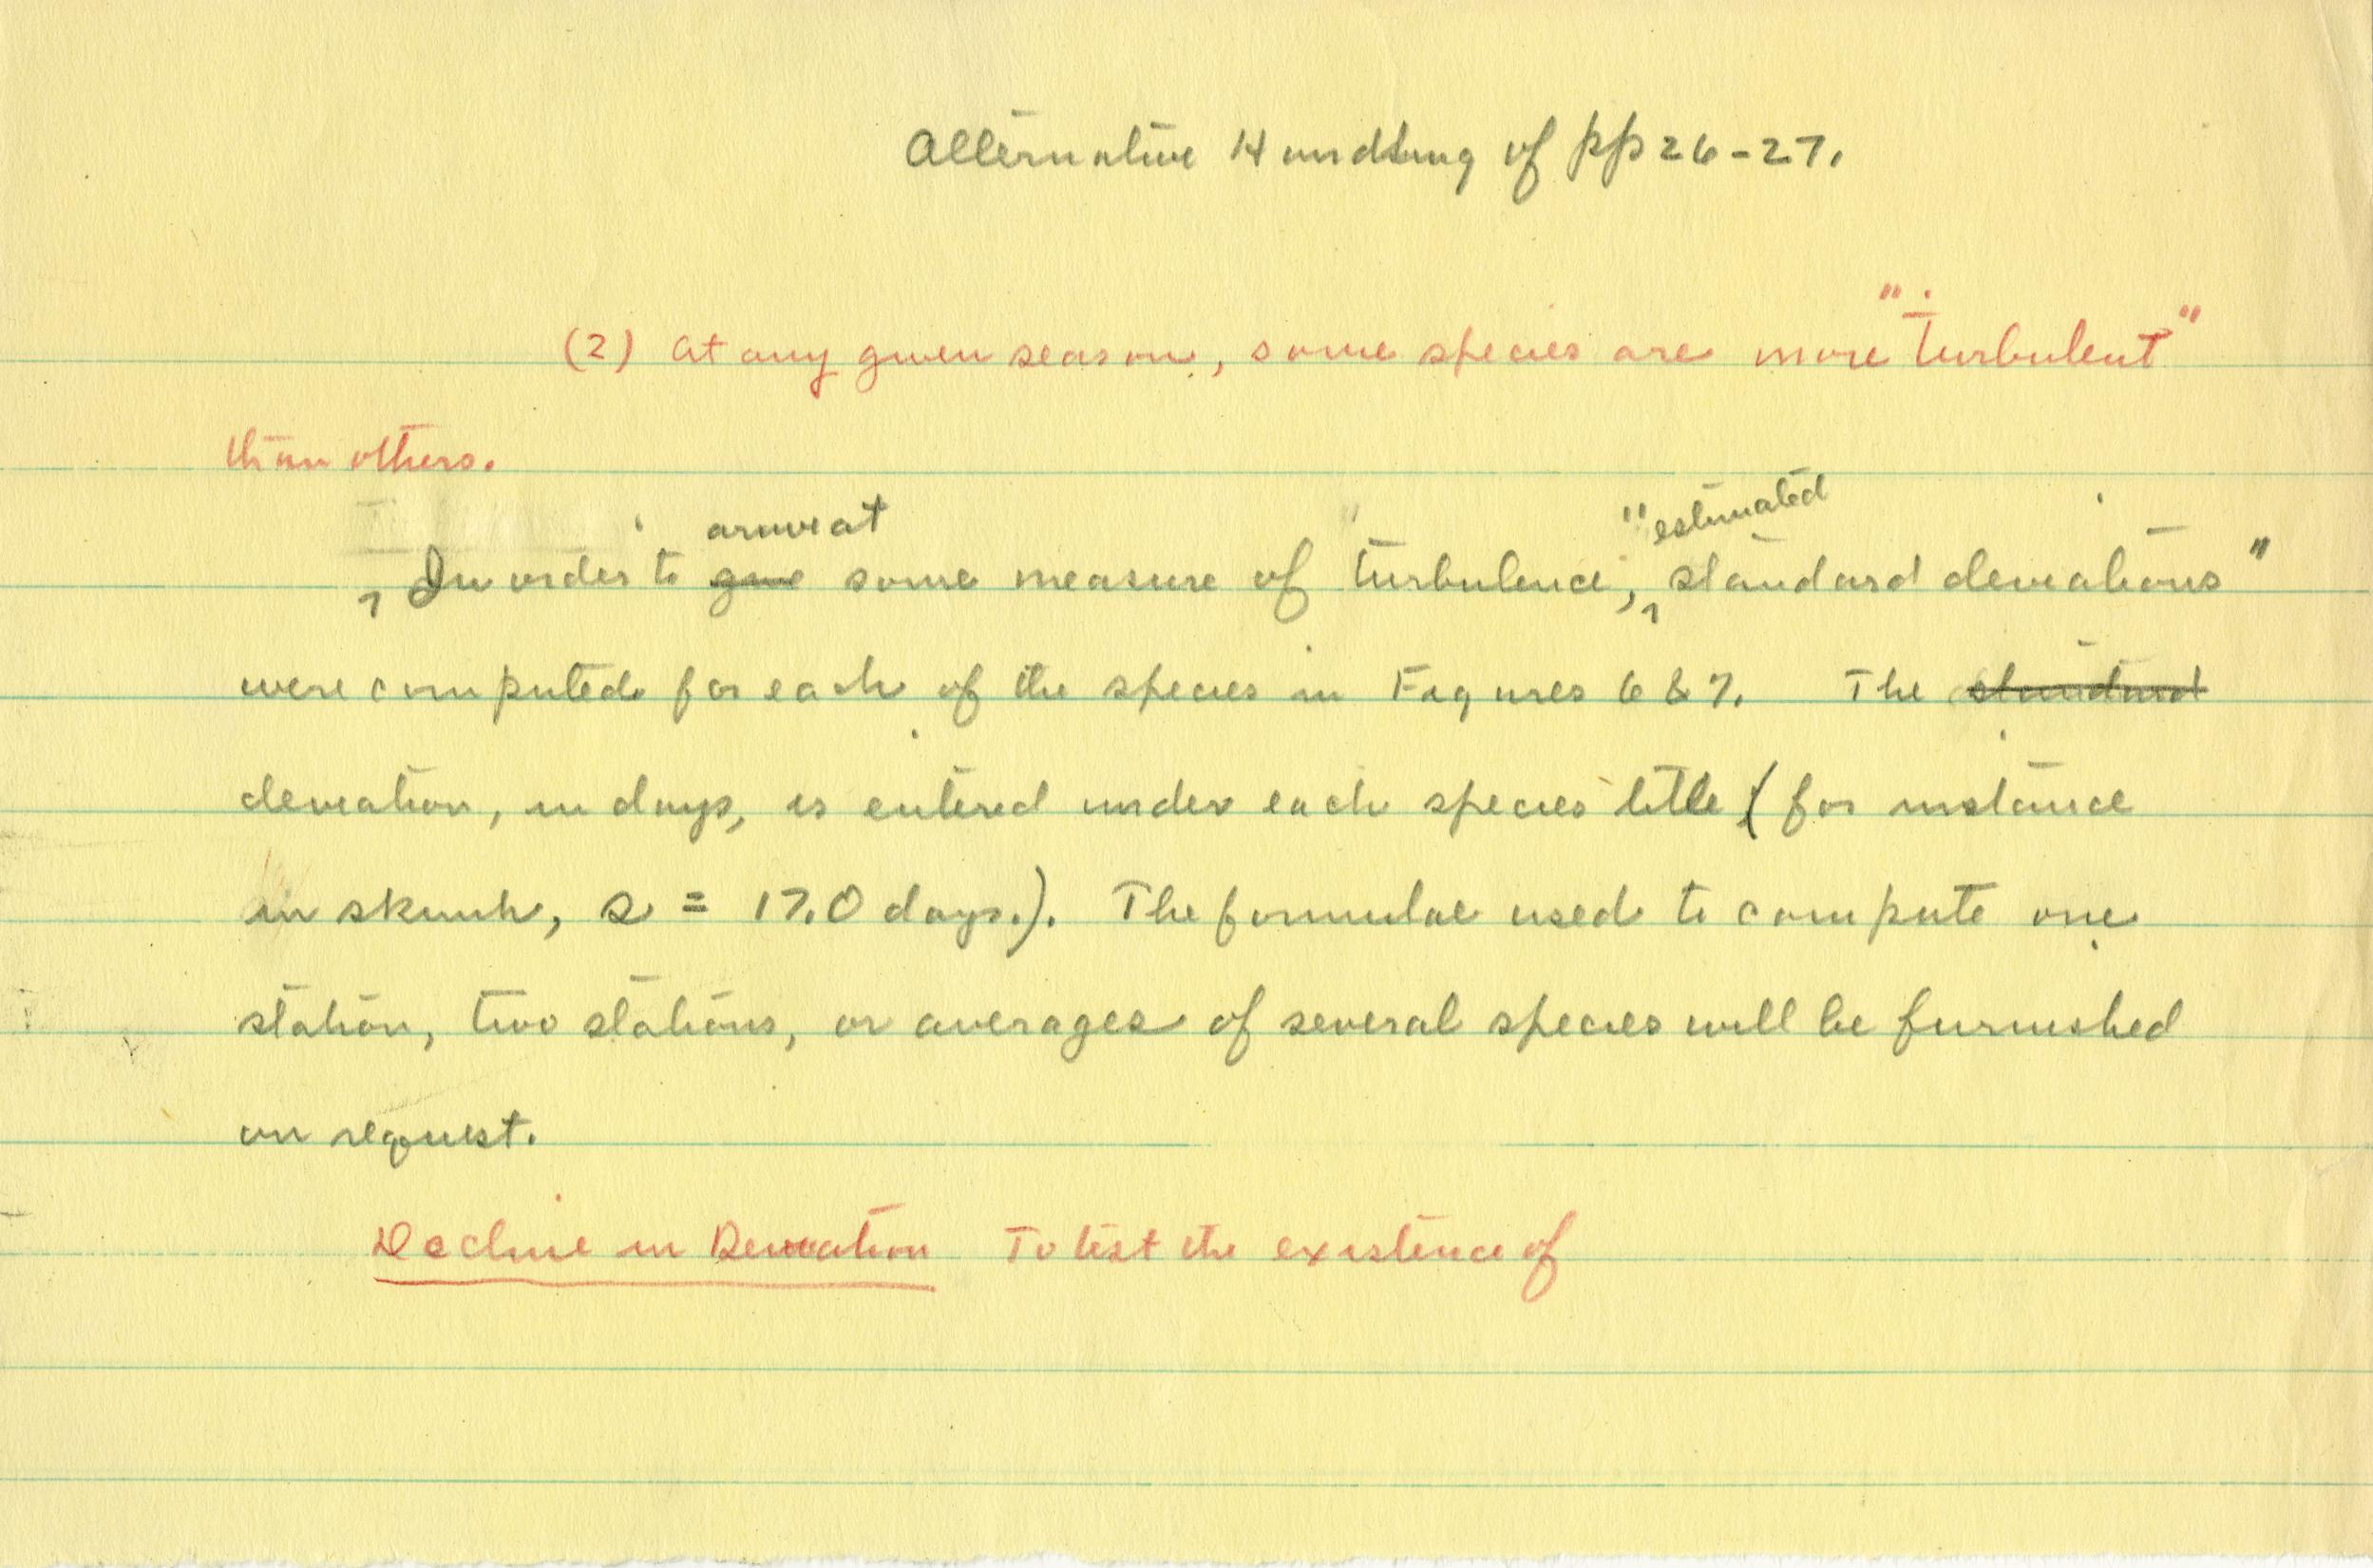 Alternative Handling of pp 26-27.
(2) At any given season, some species are more "turbulent"
than others.
In order to give arrive at some measure of turbulence, "estimated standard deviations"
were computed for each of the species in Figures 6 & 7. The standard
deviation, in days, is entered under each species title (for instance
in skunk, s = 17.0 days.). The formulae used to compute one
station, two stations, or averages of several species will be furnished
on request.
Decline in Deviation To test the existence of